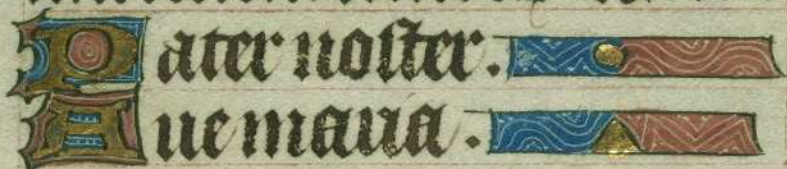 Pater noster.
Aue maria.